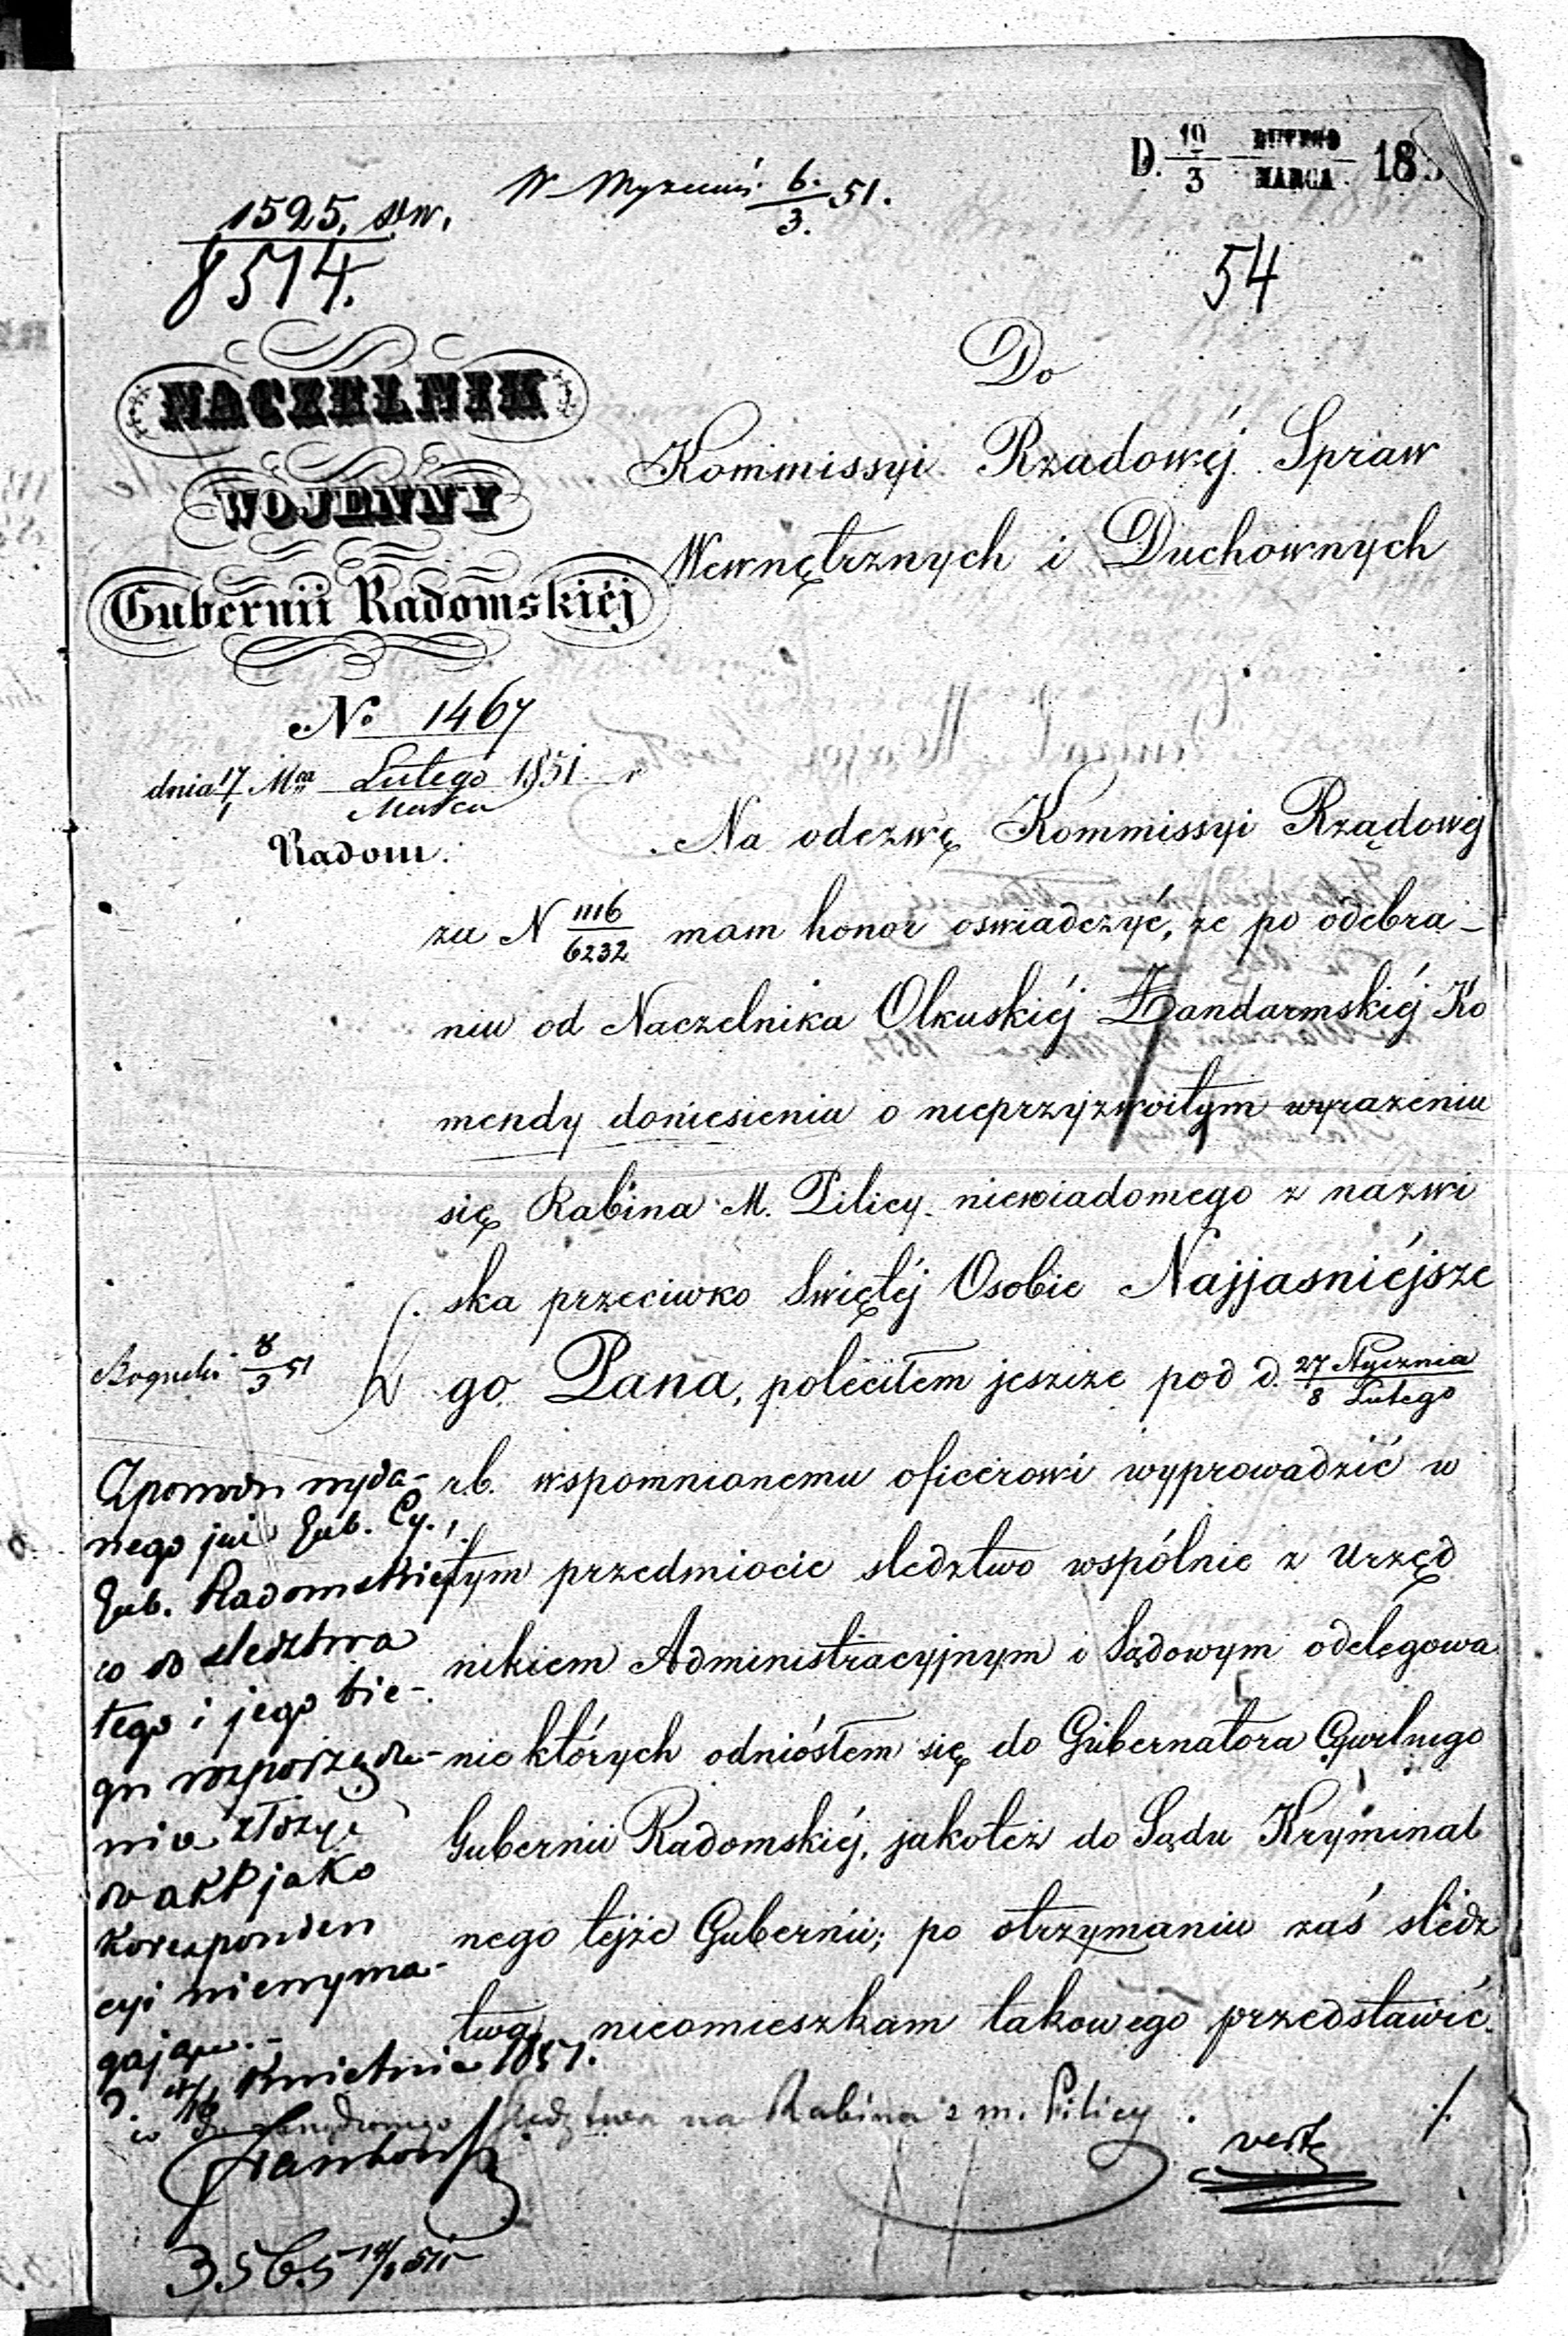 D. 19/3 LUTEGO/MARCA 185
W Wyznań. 6./3. 51.
1525.
8514.
54
NACZELNIK
WOJENNY
Gubernii Radomskiéj
No 1467
dnia 17/1 Mca Lutego/Marca 1851 r
Radom.
Do
Kommissyi Rządowéj Spraw
Wewnętrznych i Duchownych
Na odezwę Kommissyi Rządowéj
za N 1116/6232 mam honor oswiadczyć, że po odebra-
niu od Naczelnika Olkuskiéj Żandarmskiéj Ko
mendy doniesienia o nieprzyzwoitym wyrażeniu
się Rabina M. Pilicy niewiadomego z nazwi
ska przeciwko Swiętéj Osobie Najjasniéjsze
go Pana, poleciłem jeszcze pod d. 27 Stycznia/8 Lutego
r.b. wspomnionemu oficerowi wyprowadzić w
tym przedmiocie sledztwo wspólnie z Urzęd
nikiem Administracyjnym i Sądowym odelegowa
nie których odniósłem się do Gubernatora Cywilnego
Gubernii Radomskiéj, jakoteż do Sądu Kryminal
nego tejże Gubernii; po otrzymaniu zaś sledz
twa, nieomieszkam takowego przedstawić.
8/3 51
Z powodu wyda-
nego już Gub. Cy.
Gub. Radomskiej
co do sledztwa
tego i jego bie-
gu rozporządze-
nia złożyć
do akt jako
koresponden
cyi niewyma-
gającą.-
Kwietnia 1851.
co do sledztwa na Rabina z m. Pilicy.
verte
3565